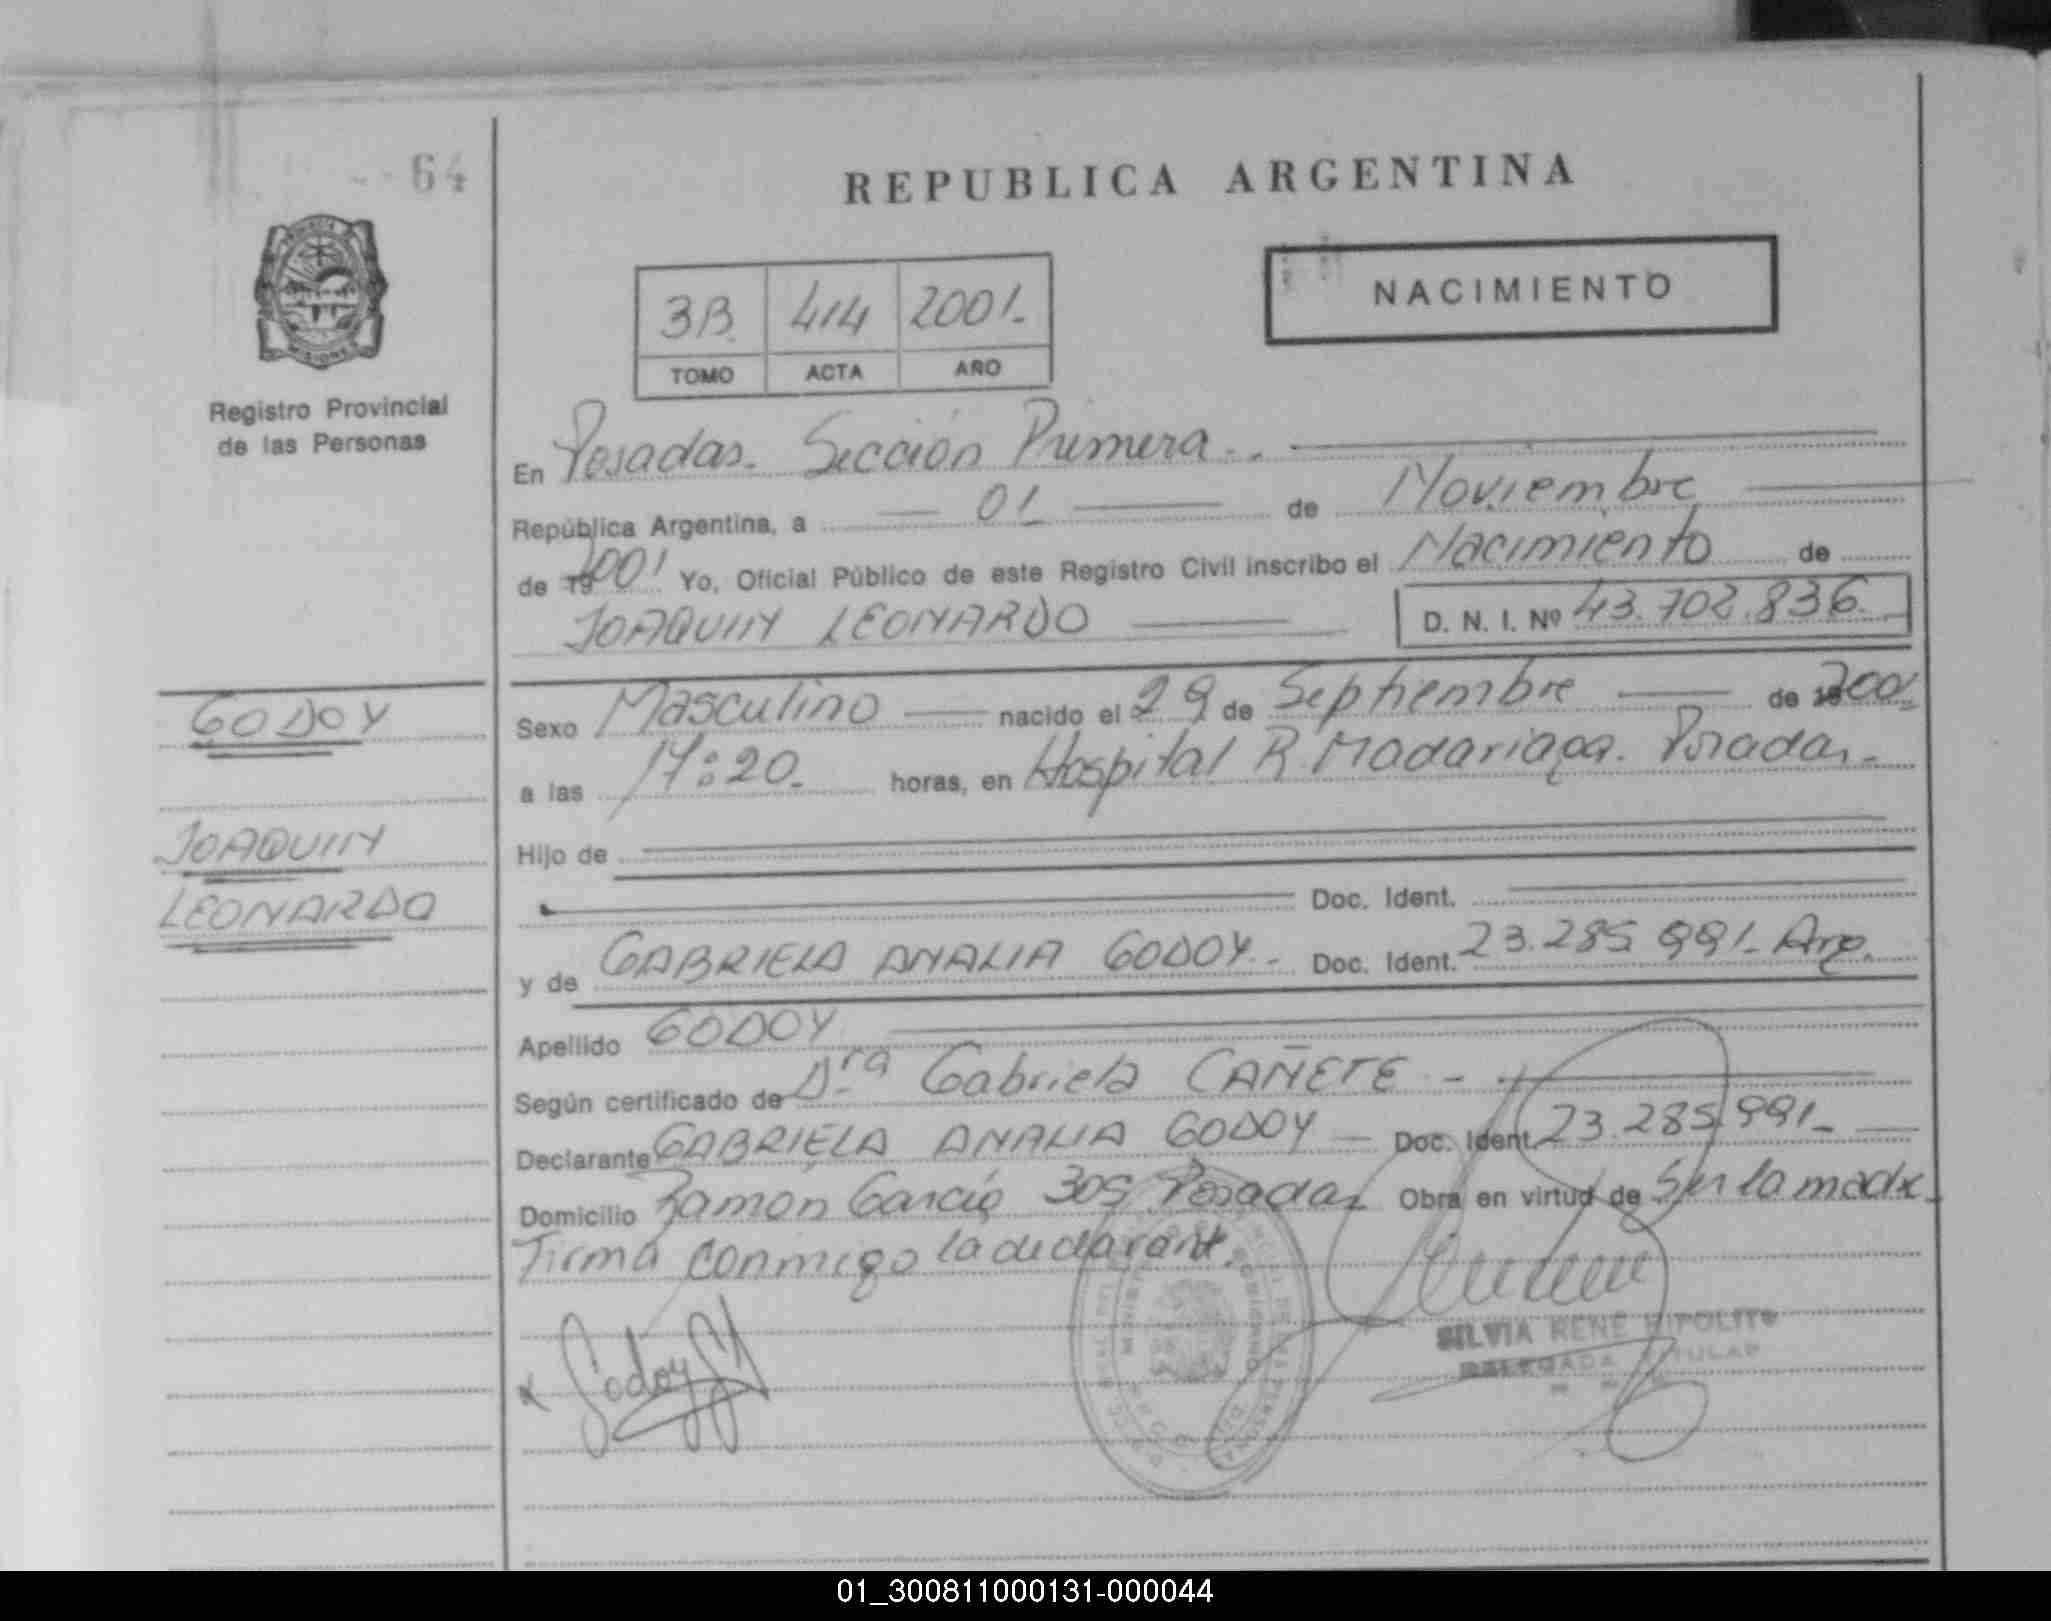 64
REPUBLICA ARGENTINA
MISIONES
Registro Provincial
de las Personas
3B. 414 2001.
TOMO ACTA AÑO
NACIMIENTO
En Posadas. Sección Primera
República Argentina, a 01 de Noviembre
de 19 2001 Yo, Oficial Público de este Registro Civil inscribo el Nacimiento de
JOAQUIN LEONARDO D. N. I. Nº 43.702.836.
GODOY
Sexo Masculino nacido el 29 de Septiembre de 19 2001
a las 17:20. horas, en Hospital R. Madariaga. Posadas.
JOAQUIN
Hijo de
LEONARDO
Doc. Ident.
y de GABRIELA ANALIA GODOY. Doc. Ident. 23.285.991. Arg.
Apellido GODOY
Según certificado de Dra Gabriela CAÑETE -
Declarante GABRIELA ANALIA GODOY Doc. Ident. 23.285.991
Domicilio Ramón García 305 Posadas Obra en virtud de Ser la madre
Firma conmigo la declarante.
x Godoy
SILVIA RENE HIPOLITO
DELEGADA TITULAR
01_300811000131-000044